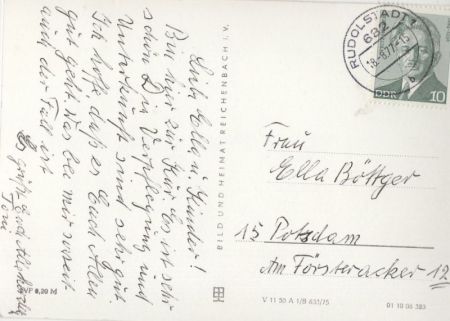 Liebe Ella u. Kinder!
Bin hier zur Kur. Es ist sehr
schön. Die Verpflegung und
Unterkunft sind sehr gut.
Ich hoffe daß es Euch Allen
gut geht was bei mir soweit
auch der Fall ist.
Es grüßt Euch Alle herzlich
Toni
EVP 0,20 M
BILD UND HEIMAT REICHENBACH I. V.
RUDOLSTADT 1
682
18.-8.77-15
b
DDR
10
Frau
Ella Böttger
15 Potsdam
Am Försteracker 12
V 11 50 A 1/B 633/75
01 10 06 383